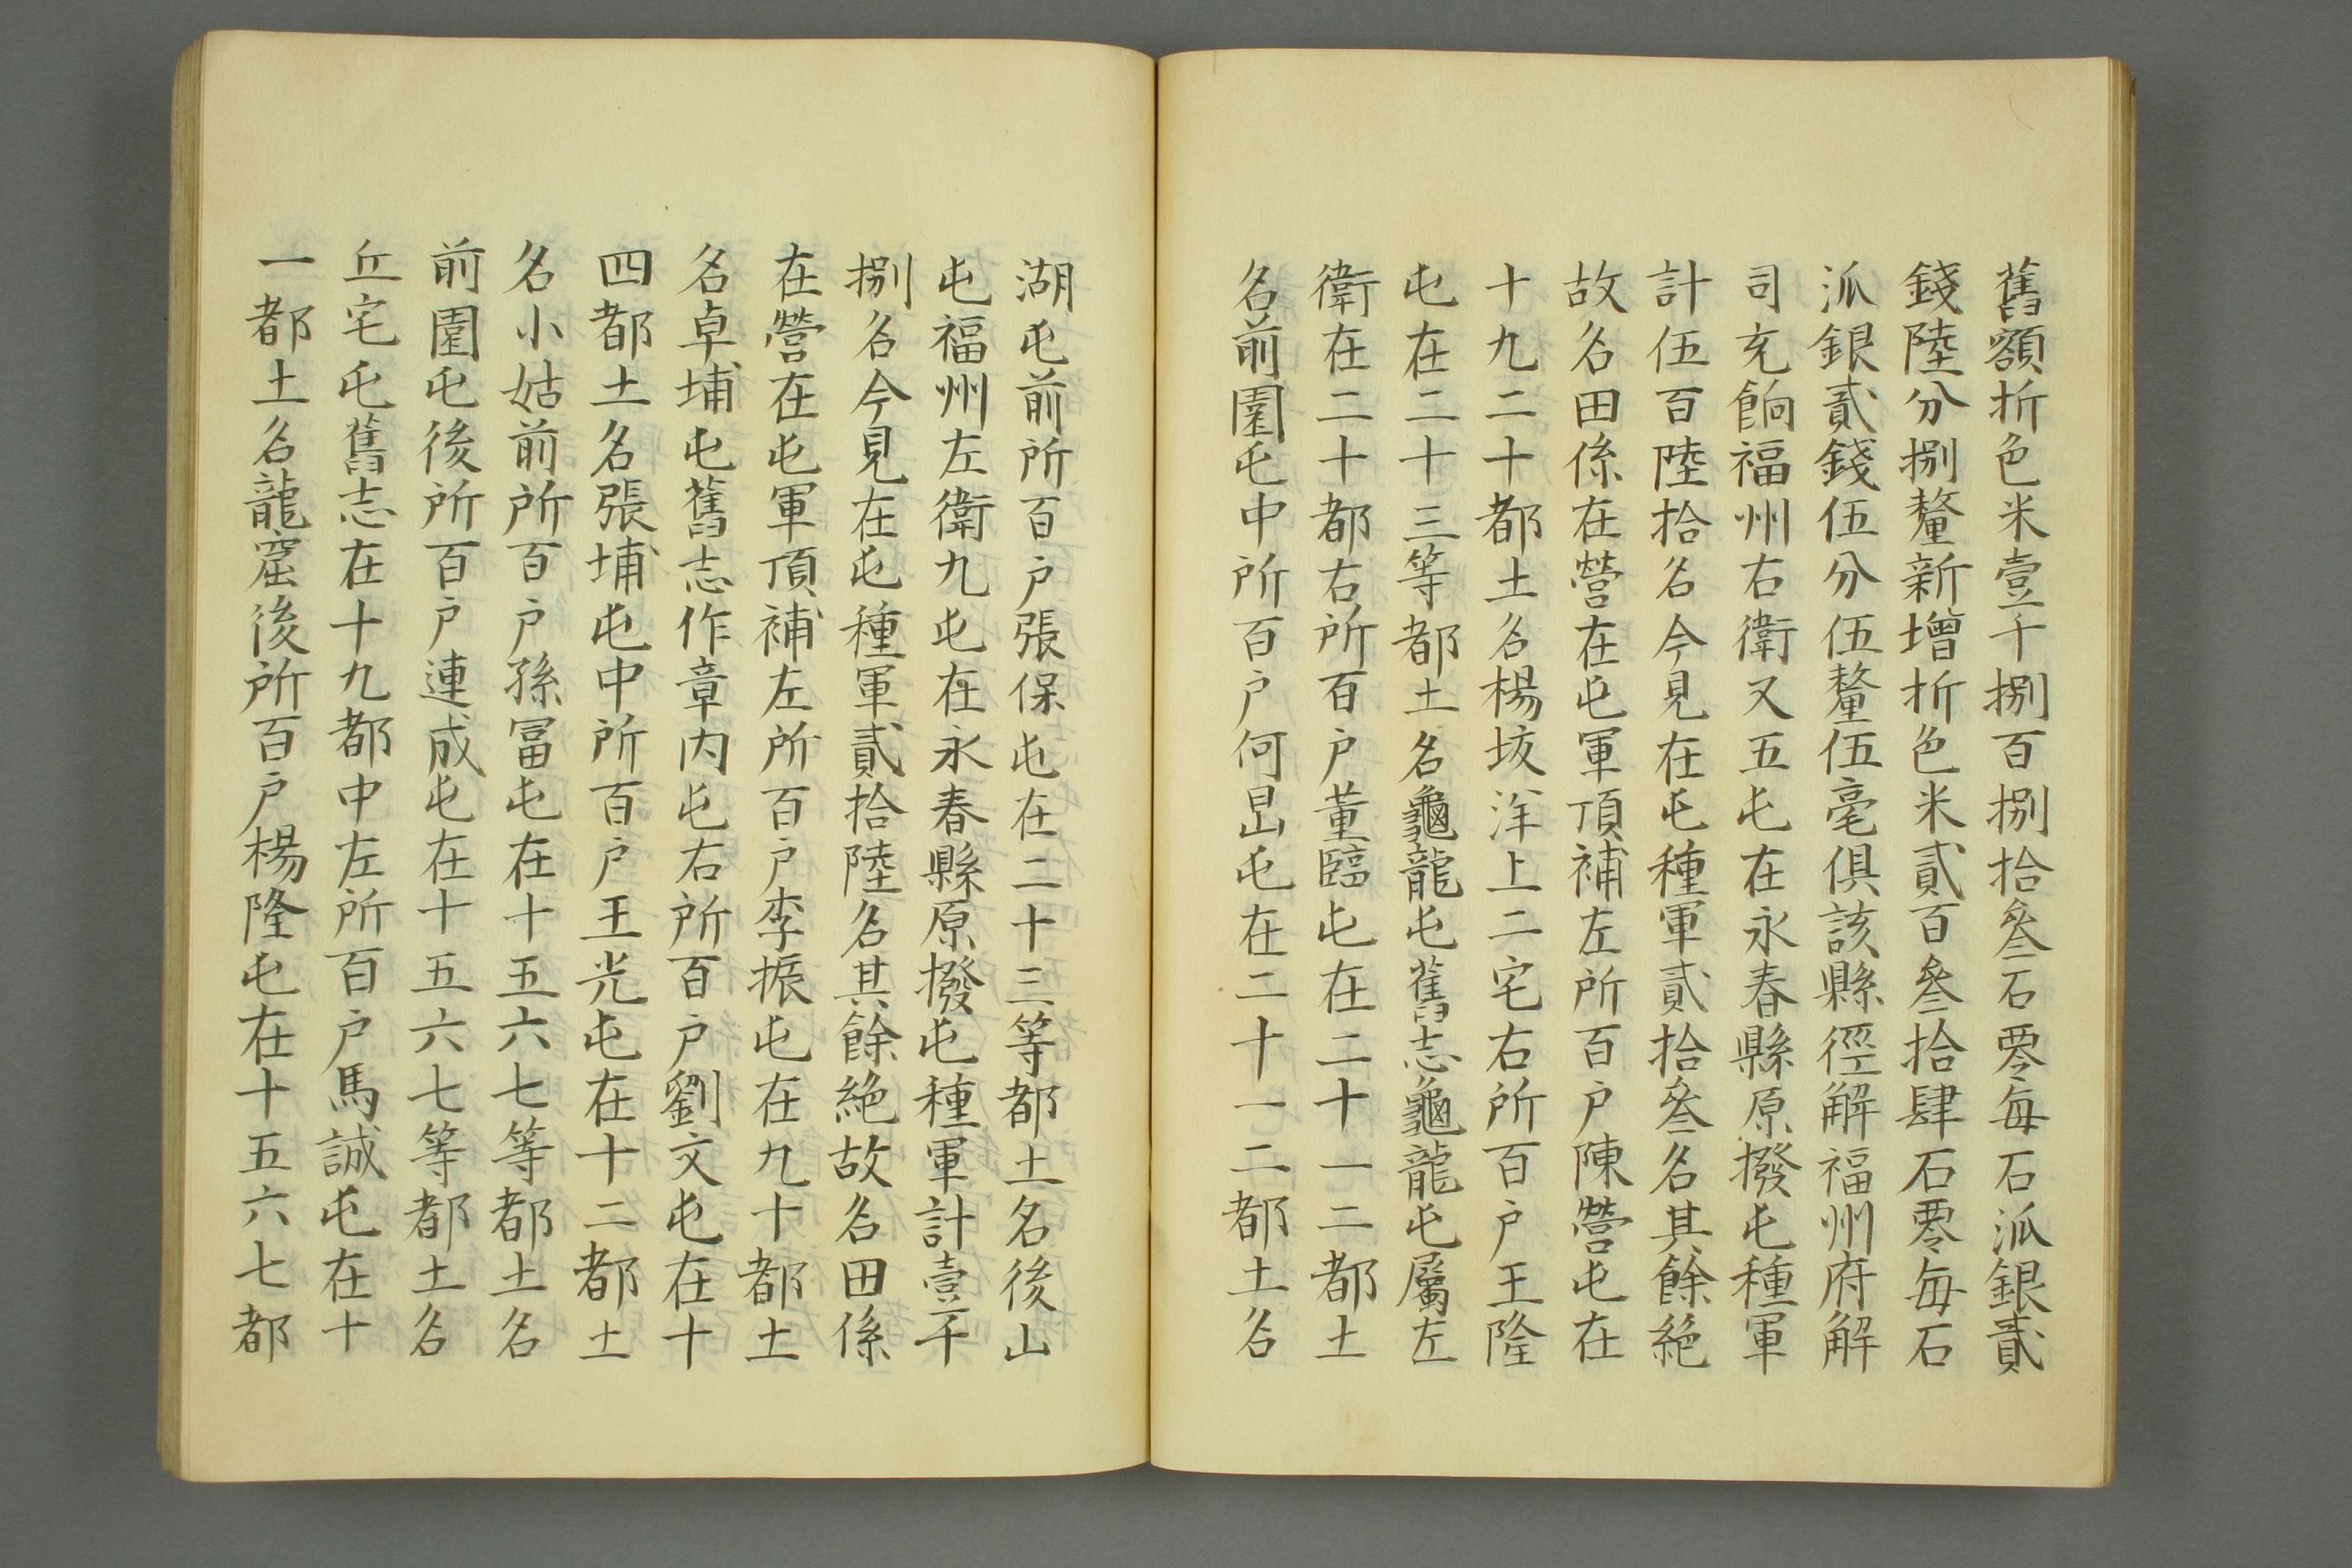 舊額折色米壹千捌百捌拾叄石零每石派銀貳
錢陸分捌釐新增折色米貳百叄拾肆石零每石
派銀貳錢伍分伍釐伍毫俱該縣徑解福州府解
司充餉福州右衛又五屯在永春縣原撥屯種軍
計伍百陸拾名今見在屯種軍貳拾叄名其餘絕
故名田係在營在屯軍頂補左所百户陳營屯在
十九二十都土名楊垓洋上二宅右所百户王隆
屯在二十三等都土名龜龍屯舊志龜龍屯屬左
衛在二十都右所百户董臨屯在二十一二都土
名前園屯中所百户何昆屯在二十一二都土名
湖屯前所百户張保屯在二十三等都土名後山
屯福州左衛九屯在永春縣原撥屯種軍計壹千
捌名今見在屯種軍貳拾陸名其餘絕故名田係
在營在屯軍頂補左所百户李振屯在九十都土
名卓埔屯舊志作章内屯右所百户劉文屯在十
四都土名張埔屯中所百户王光屯在十二都土
名小姑前所百户孫冨屯在十五六七等都土名
前園屯後所百户連成屯在十五六七等都土名
丘宅屯舊志在十九都中左所百户馬誠屯在十
一都土名龍窟後所百户楊隆屯在十五六七都